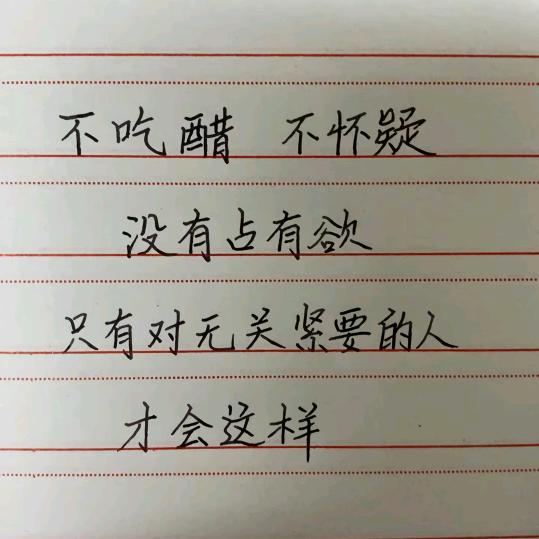 不吃醋 不怀疑
没有占有欲
只有对无关紧要的人
才会这样